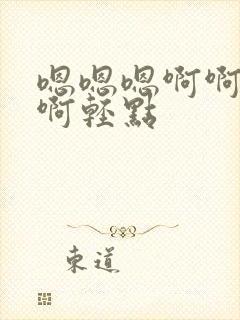 嗯嗯嗯啊啊
啊輕點
東道